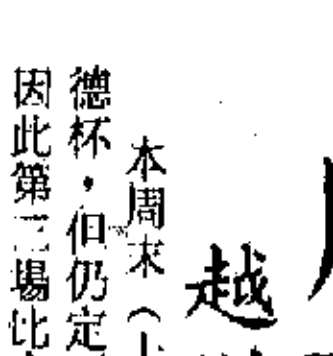 越
本周末（
德杯，但仍定
因此第二場比